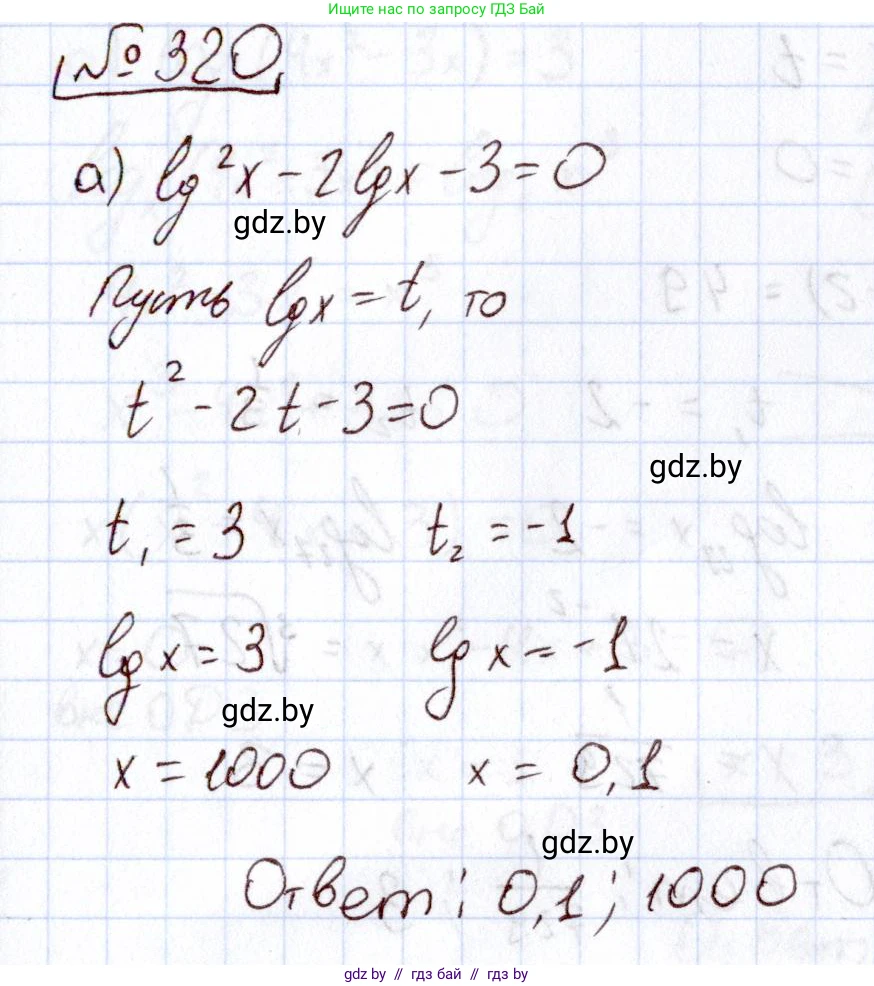 Ищите нас по запросу ГДЗ Бай
№ 320
а) lg²x - 2lgx - 3 = 0
gdz.by
Пусть lgx = t, то
t² - 2t - 3 = 0
gdz.by
t₁ = 3 t₂ = -1
lgx = 3 lgx = -1
gdz.by
x = 1000 x = 0,1
gdz.by
Ответ: 0,1; 1000
gdz.by // гдз бай // гдз by